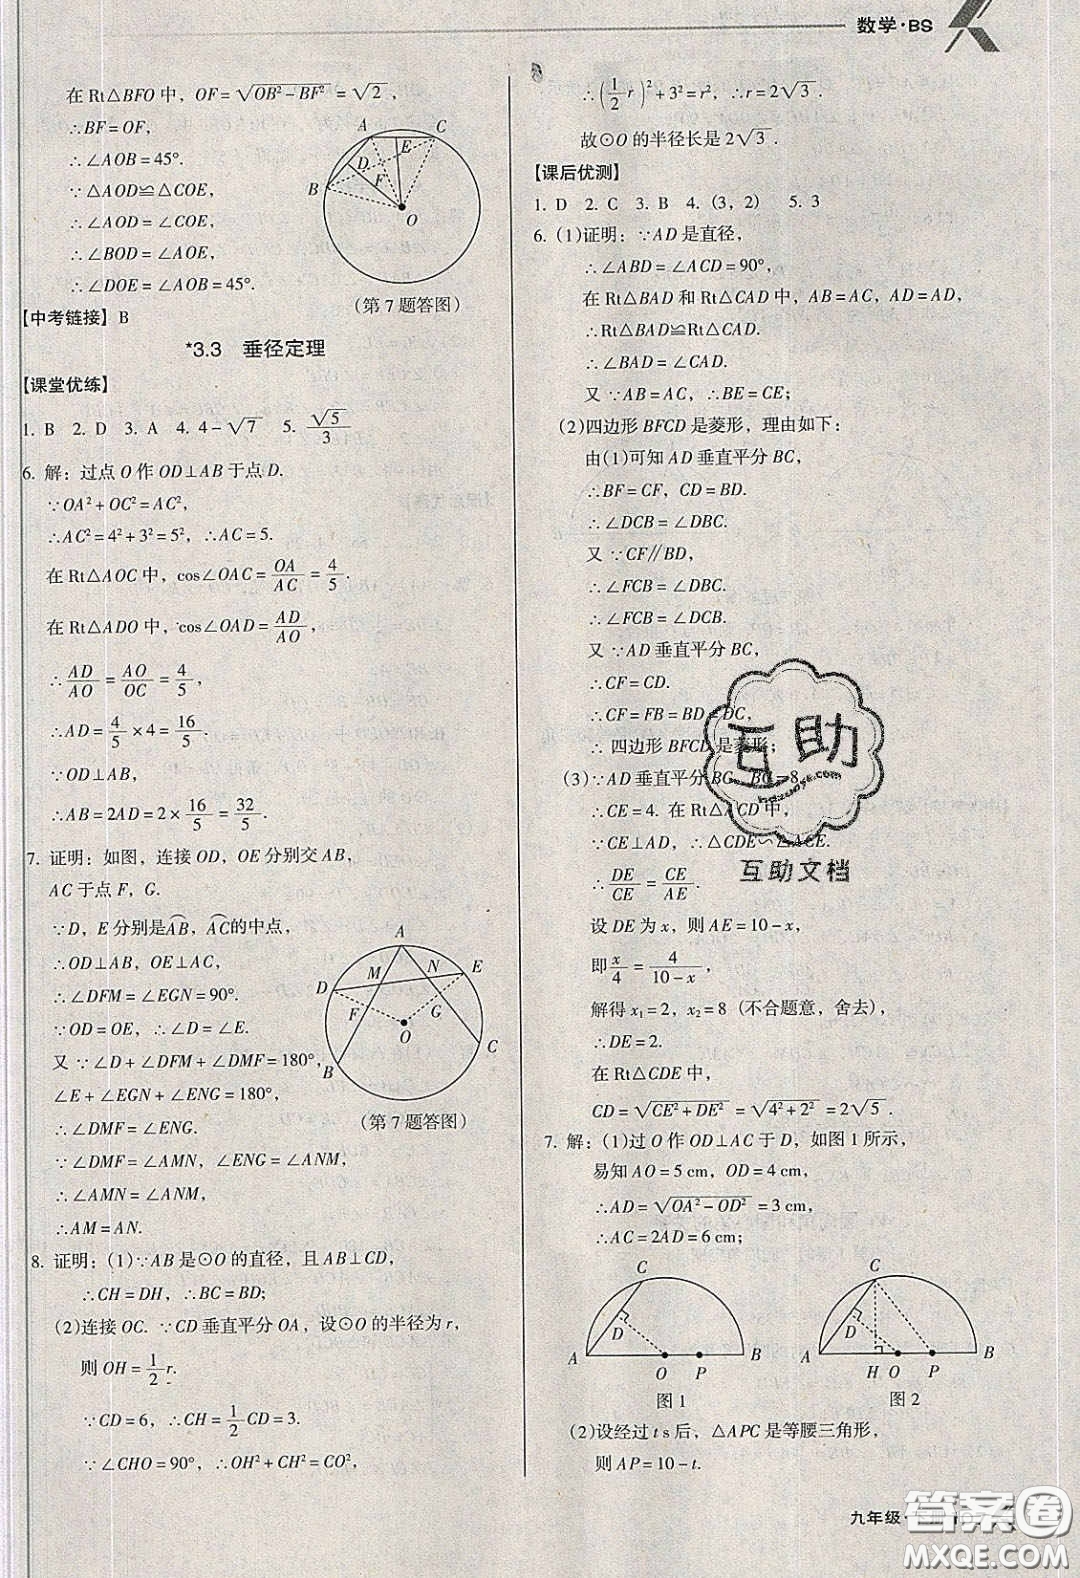 数学·BS
在 Rt△BFO 中，OF=√(OB²-BF²)=√2，
∴BF=OF，
∴∠AOB=45°.
∵△AOD≌△COE，
∴∠AOD=∠COE，
∴∠BOD=∠AOE，
∴∠DOE=∠AOB=45°.
A
C
E
D
F
B
O
(第 7 题答图)
【中考链接】 B
*3.3 垂径定理
【课堂优练】
1. B 2. D 3. A 4. 4-√7 5. √5/3
6. 解：过点 O 作 OD⊥AB 于点 D.
∵OA²+OC²=AC²，
∴AC²=4²+3²=5²，∴AC=5.
在 Rt△AOC 中，cos∠OAC=OA/AC=4/5.
在Rt△ADO 中，cos∠OAD=AD/AO，
∴AD/AO=AO/OC=4/5，
∴AD=4/5×4=16/5.
∵OD⊥AB，
∴AB=2AD=2×16/5=32/5.
7. 证明：如图，连接 OD，OE 分别交 AB，
AC 于点 F，G.
∵D，E 分别是A͡B，A͡C的中点，
∴OD⊥AB，OE⊥AC，
∴∠DFM=∠EGN=90°.
∵OD=OE，∴∠D=∠E.
又 ∵∠D+∠DFM+∠DMF=180°，
∠E+∠EGN+∠ENG=180°，
∴∠DMF=∠ENG.
∵∠DMF=∠AMN，∠ENG=∠ANM，
∴∠AMN=∠ANM，
∴AM=AN.
A
M
N
E
D
F
G
O
B
C
(第 7 题答图)
8. 证明：(1)∵AB 是⊙O 的直径，且 AB⊥CD，
∴CH=DH，∴BC=BD；
(2)连接 OC. ∵CD 垂直平分 OA，设⊙O 的半径为 r，
则 OH=1/2r.
∵CD=6，∴CH=1/2CD=3.
∵∠CHO=90°，∴OH²+CH²=CO²，
∴(1/2r)²+3²=r²，∴r=2√3.
故⊙O 的半径长是 2√3.
【课后优测】
1. D 2. C 3. B 4. (3，2) 5. 3
6. (1)证明：∵AD 是直径，
∴∠ABD=∠ACD=90°，
在 Rt△BAD 和 Rt△CAD 中，AB=AC，AD=AD，
∴Rt△BAD≌Rt△CAD.
∴∠BAD=∠CAD.
又 ∵AB=AC，∴BE=CE；
(2)四边形 BFCD 是菱形，理由如下：
由(1)可知 AD 垂直平分 BC，
∴BF=CF，CD=BD.
∴∠DCB=∠DBC.
又 ∵CF∥BD，
∴∠FCB=∠DBC.
∴∠FCB=∠DCB.
又 ∵AD 垂直平分 BC，
∴CF=CD.
∴CF=FB=BD=DC，
∴ 四边形 BFCD 是菱形；
(3)∵AD 垂直平分 BC，BC=8，
∴CE=4. 在 Rt△ACD 中，
∵CE⊥AD，∴△CDE∽△ACE.
∴DE/CE=CE/AE.
设 DE 为 x，则 AE=10-x，
即x/4=4/(10-x)，
解得 x₁=2，x₂=8（不合题意，舍去），
∴DE=2.
在 Rt△CDE 中，
CD=√(CE²+DE²)=√(4²+2²)=2√5.
7. 解：(1)过 O 作 OD⊥AC 于 D，如图 1 所示，
易知 AO=5 cm，OD=4 cm，
∴AD=√(OA²-OD²)=3 cm，
∴AC=2AD=6 cm.
C
D
A
O
P
B
图 1
C
D
A
H
O
P
B
图 2
(2)设经过 t s 后，△APC 是等腰三角形，
则 AP=10-t.
互助
互助文档
九年级·
答案圈
MXQE.COM